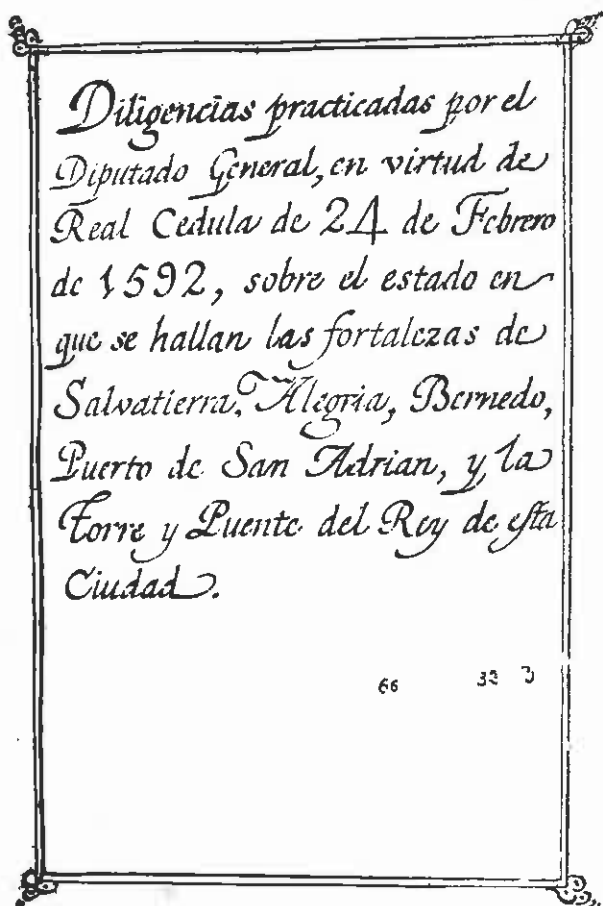 Diligencias practicadas por el
Diputado General, en virtud de
Real Cedula de 24 de Febrero
de 1592, sobre el estado en
que se hallan las fortalezas de
Salvatierra, Alegria, Bernedo,
Puerto de San Adrian, y la
Torre y Puente del Rey de esta
Ciudad.
66 32